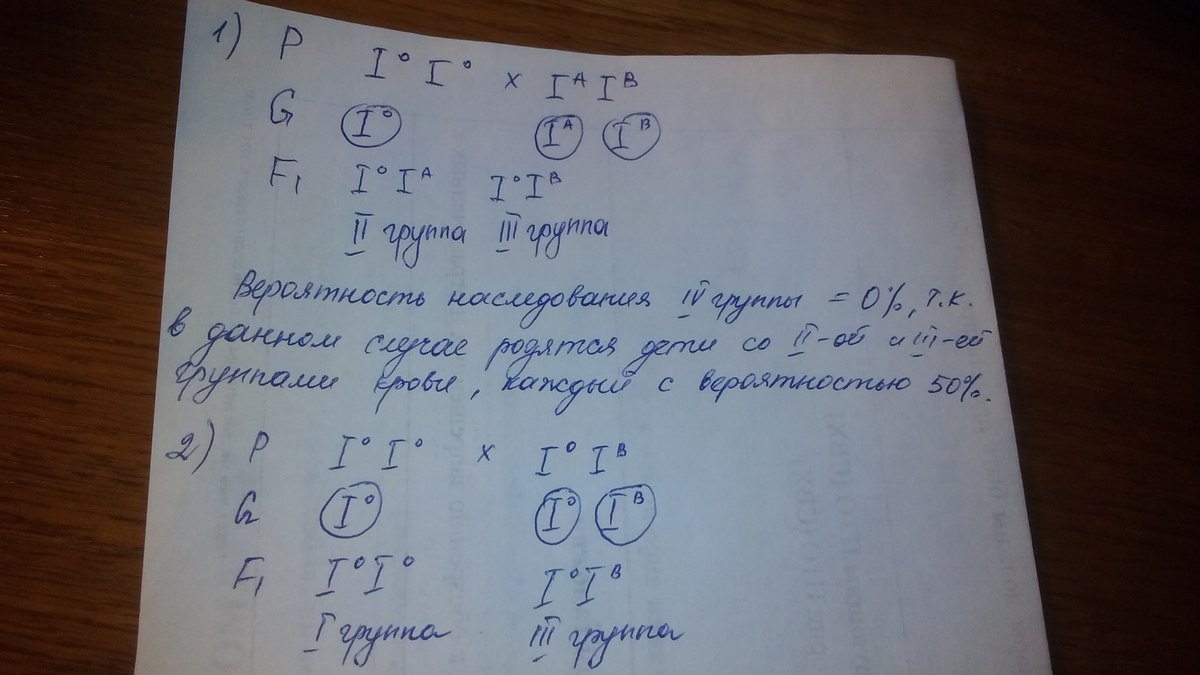 1) P I⁰ I⁰ x Iᴬ Iᴮ
G I⁰ Iᴬ Iᴮ
F₁ I⁰ Iᴬ I⁰ Iᴮ
II группа III группа
Вероятность наследования IV группы = 0%, т.к.
в данном случае родятся дети со II-ой и III-ей
группами крови, каждый с вероятностью 50%.
2) P I⁰ I⁰ x I⁰ Iᴮ
G I⁰ I⁰ Iᴮ
F₁ I⁰ I⁰ I⁰ Iᴮ
I группа III группа